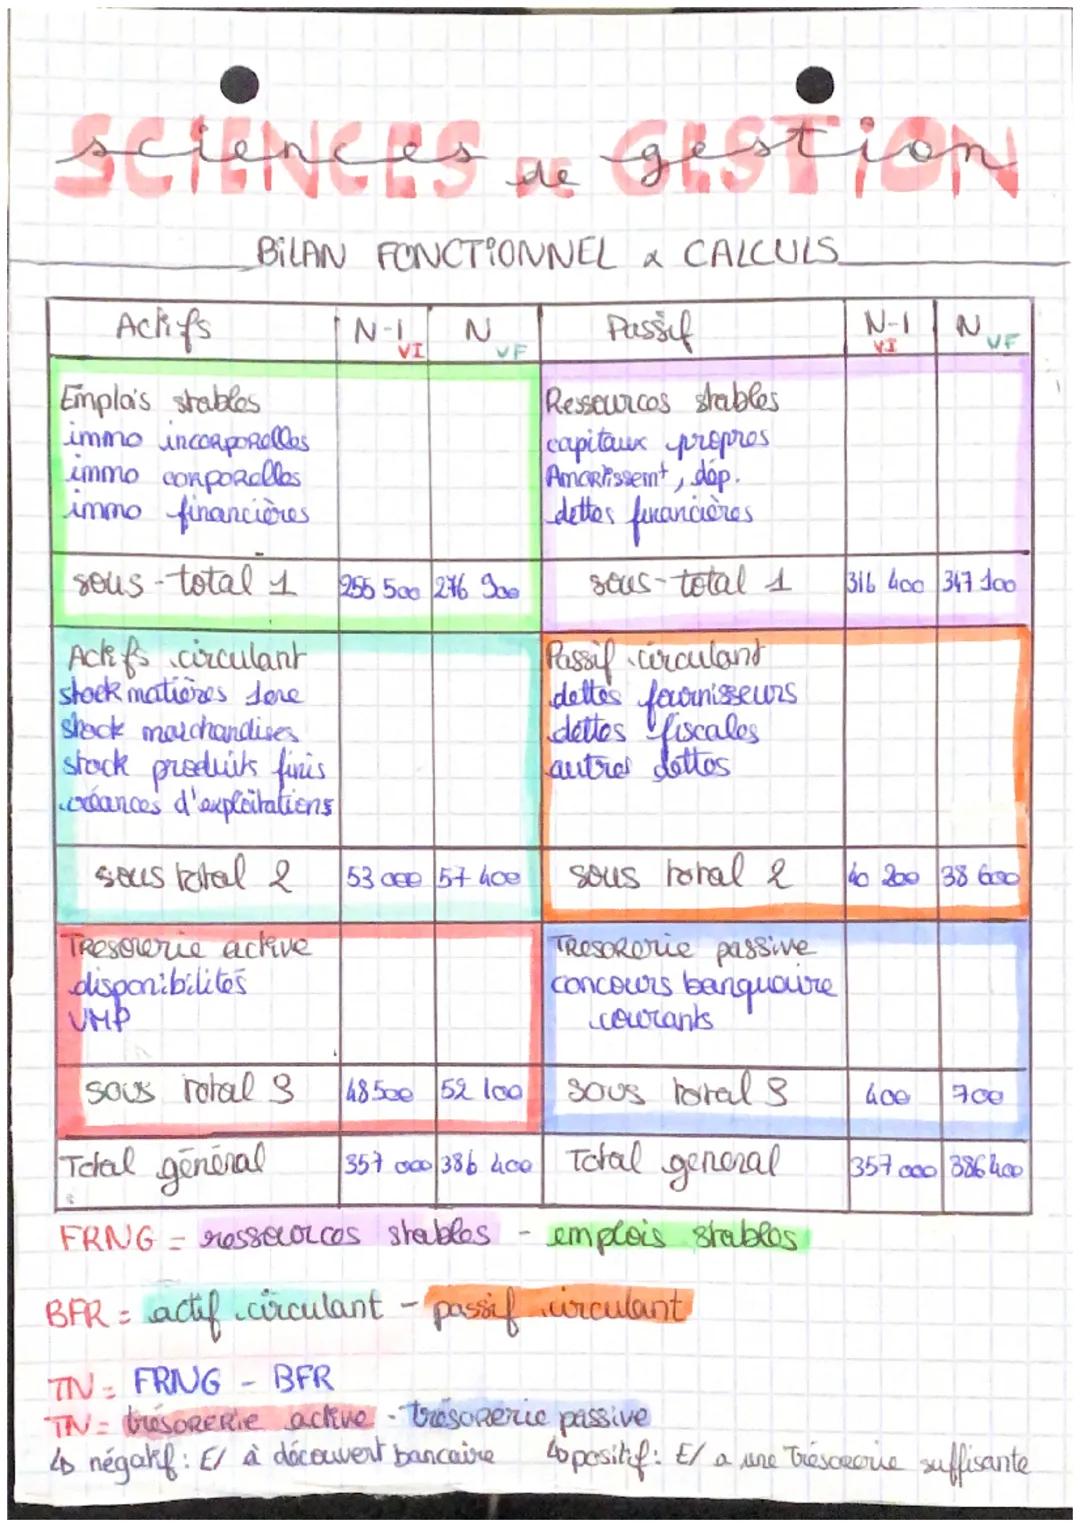 SCIENCES DE GESTION
sciences de gestion
BILAN FONCTIONNEL & CALCULS
Actifs N-1 VI N VF Passif N-1 VI N VF
Emplois stables Ressources stables
immo incorporelles capitaux propres
immo corporelles Amortissemt, dép.
immo financières dettes financières
sous-total 1 255 500 276 900 sous-total 1 316 400 347 100
Actifs circulant Passif circulant
stock matières 1ère dettes fournisseurs
stock marchandises dettes fiscales
stock produits finis autres dettes
créances d'exploitations
sous total 2 53 000 57 400 sous total 2 40 200 38 600
Tresorerie active Tresorerie passive
disponibilités concours banquaire
VMP courants
sous total 3 48 500 52 100 sous total 3 400 700
Total général 357 000 386 400 Total general 357 000 386 400
FRNG = ressources stables - emplois stables
BFR = actif circulant - passif circulant
TN = FRNG - BFR
TN = trésorerie active - trésorerie passive
↳ négatif : E/ à découvert bancaire ↳ positif : E/ a une trésorerie suffisante